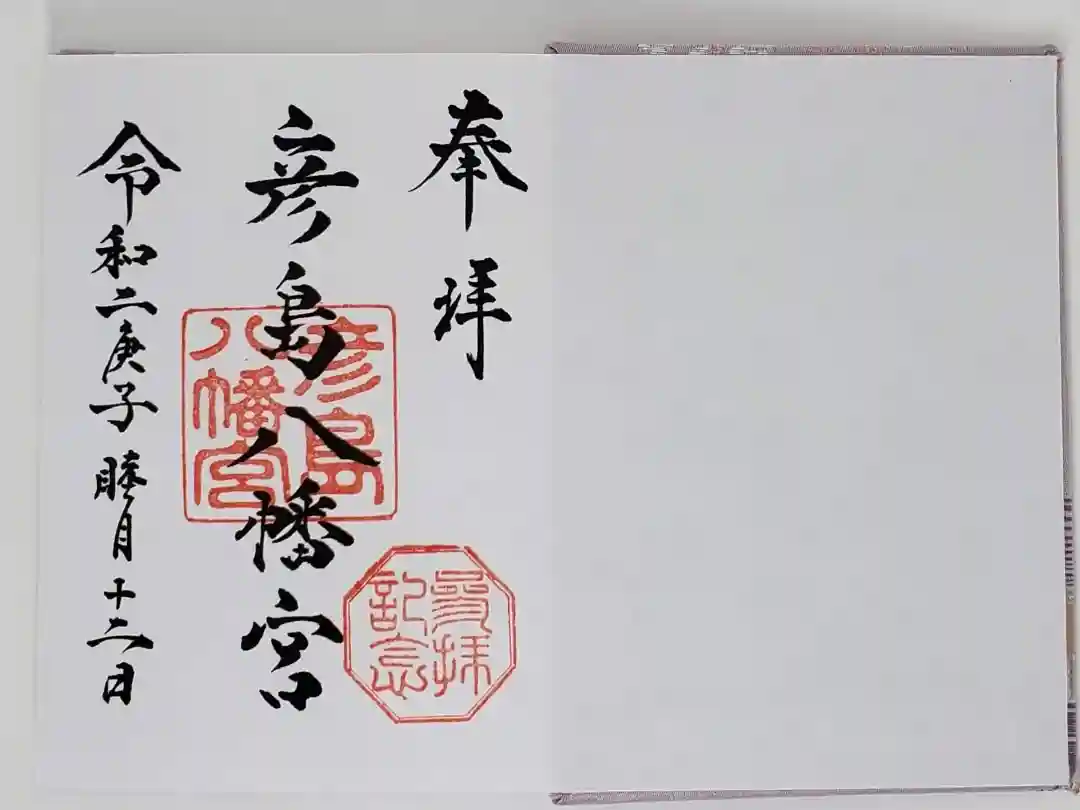 奉拝
彦島八幡宮
令和二庚子 睦月十二日
彦島
八幡宮
参拝
記念